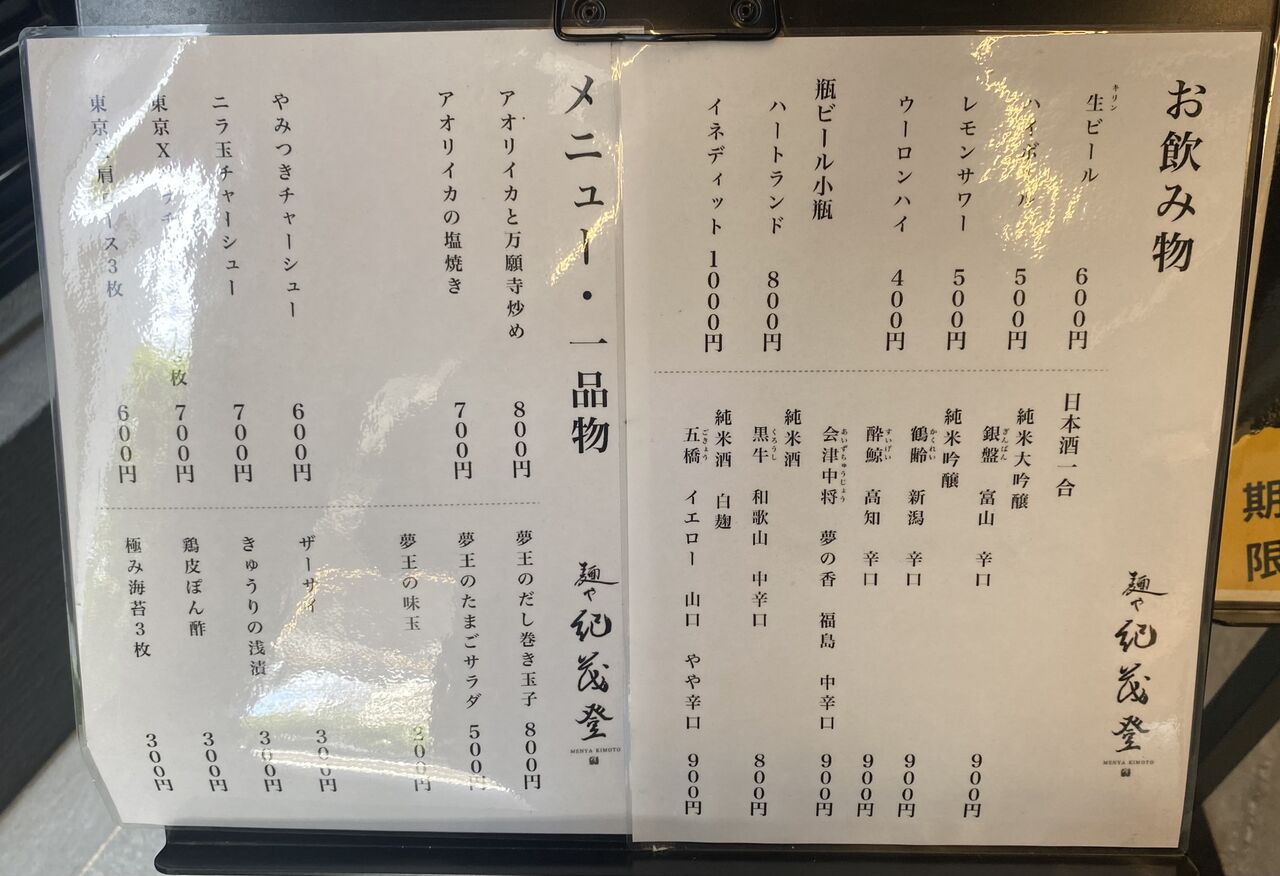 お飲み物
キリン
生ビール 600円
ハイボール 500円
レモンサワー 500円
ウーロンハイ 400円
瓶ビール小瓶
ハートランド 800円
イネディット 1000円
日本酒一合
純米大吟醸
ぎんばん
銀盤 富山 辛口 900円
純米吟醸
かくれい
鶴齢 新潟 辛口 900円
すいげい
酔鯨 高知 辛口 900円
あいずちゅうじょう
会津中将 夢の香 福島 中辛口 900円
純米酒
くろうし
黒牛 和歌山 中辛口 800円
純米酒 白麹
ごきょう
五橋 イエロー 山口 やや辛口 900円
麺や 紀茂登
MENYA KIMOTO
メニュー・一品物
アオリイカと万願寺炒め 800円
アオリイカの塩焼き 700円
やみつきチャーシュー 600円
ニラ玉チャーシュー 700円
東京X 枚 700円
東京X肩ロース3枚 600円
夢王のだし巻き玉子 800円
夢王のたまごサラダ 500円
夢王の味玉 200円
ザーサイ 300円
きゅうりの浅漬 300円
鶏皮ぽん酢 300円
極み海苔3枚 300円
麺や 紀茂登
MENYA KIMOTO
期
限